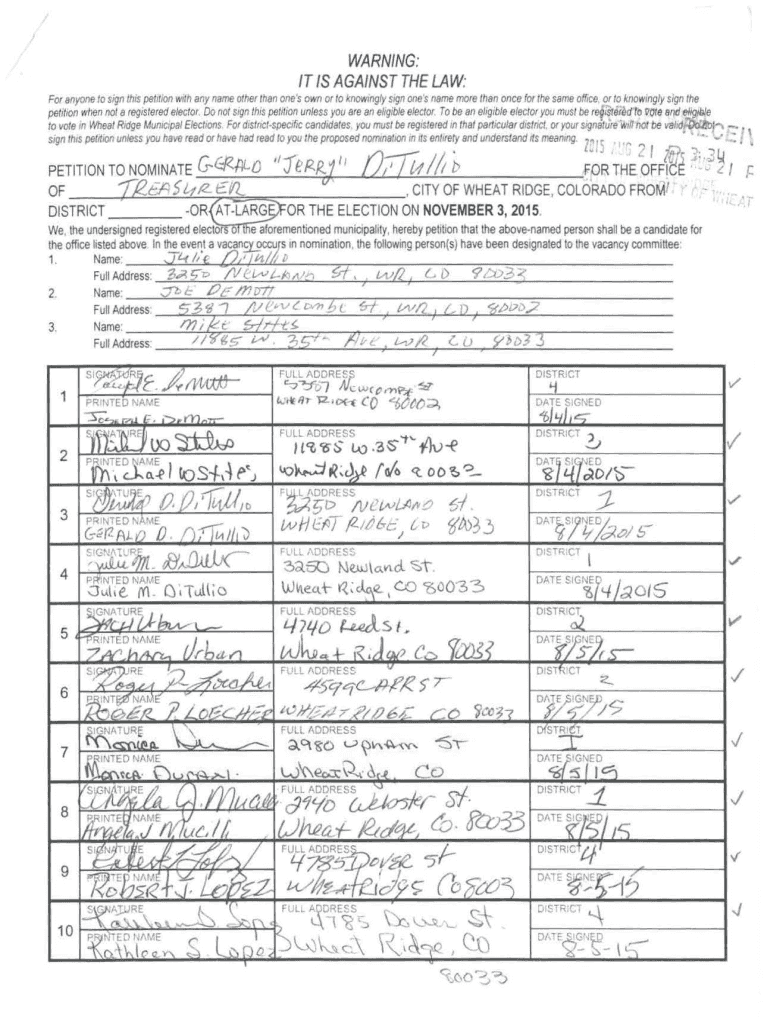 WARNING:
IT IS AGAINST THE LAW:
For anyone to sign this petition with any name other than one's own or to knowingly sign one's name more than once for the same office, or to knowingly sign the
petition when not a registered elector. Do not sign this petition unless you are an eligible elector. To be an eligible elector you must be registered to vote and eligible
to vote in Wheat Ridge Municipal Elections. For district-specific candidates, you must be registered in that particular district, or your signature will not be valid. Do not
sign this petition unless you have read or have had read to you the proposed nomination in its entirety and understand its meaning.
2015 AUG 21 P 3:34
PETITION TO NOMINATE GERALD "JERRY" DiTullio FOR THE OFFICE
OF TREASURER, CITY OF WHEAT RIDGE, COLORADO FROM
DISTRICT -OR- AT-LARGE FOR THE ELECTION ON NOVEMBER 3, 2015.
We, the undersigned registered electors of the aforementioned municipality, hereby petition that the above-named person shall be a candidate for
the office listed above. In the event a vacancy occurs in nomination, the following person(s) have been designated to the vacancy committee:
1. Name: Julie DiTullio
Full Address: 3250 NEWLAND St., WR, CO 80033
2. Name: JOE DEMOTT
Full Address: 5387 Newcombe St, WR, CO, 80002
3. Name: Mike Stites
Full Address: 11885 W. 35th Ave, WR, CO, 80033
SIGNATURE FULL ADDRESS DISTRICT
E. DeMott 5387 Newcombe St 4
1 PRINTED NAME WHEAT RIDGE CO 80002 DATE SIGNED
JOSEPH E. DEMOTT 8/4/15
SIGNATURE FULL ADDRESS DISTRICT
Michael W Stites 11885 W. 35th Ave 3
2 PRINTED NAME DATE SIGNED
Michael W Stites Wheat Ridge 80033 8/4/2015
SIGNATURE FULL ADDRESS DISTRICT
D. DiTullio 3250 NEWLAND St. 1
3 PRINTED NAME DATE SIGNED
GERALD D. DiTullio WHEAT RIDGE, CO 80033 8/4/2015
SIGNATURE FULL ADDRESS DISTRICT
Julie M. DiTullio 3250 Newland St. 1
4 PRINTED NAME DATE SIGNED
Julie M. DiTullio Wheat Ridge, CO 80033 8/4/2015
SIGNATURE FULL ADDRESS DISTRICT
Zach Urban 4740 Reed St. 2
5 PRINTED NAME DATE SIGNED
ZACHARY Urban Wheat Ridge Co 80033 8/5/15
SIGNATURE FULL ADDRESS DISTRICT
Roger P. Loecher 4599 CARR ST 2
6 PRINTED NAME DATE SIGNED
ROGER P. LOECHER WHEATRIDGE CO 80033 8/5/15
SIGNATURE FULL ADDRESS DISTRICT
Monica 2980 Upham ST I
7 PRINTED NAME DATE SIGNED
Monica Wheat Ridge, CO 8/5/15
SIGNATURE FULL ADDRESS DISTRICT
Angela J. 2940 Webster St. 1
8 PRINTED NAME DATE SIGNED
Angela J Mucilli Wheat Ridge, Co. 80033 8/5/15
SIGNATURE FULL ADDRESS DISTRICT
Robert J Lopez 4785 DOVER St 4
9 PRINTED NAME DATE SIGNED
ROBERT J. LOPEZ WHEATRIDGE CO 8003 8-5-15
SIGNATURE FULL ADDRESS DISTRICT
Kathleen S Lopez 4785 Dover St. 4
10 PRINTED NAME DATE SIGNED
Kathleen S. Lopez Wheat Ridge, CO 8-5-15
80033